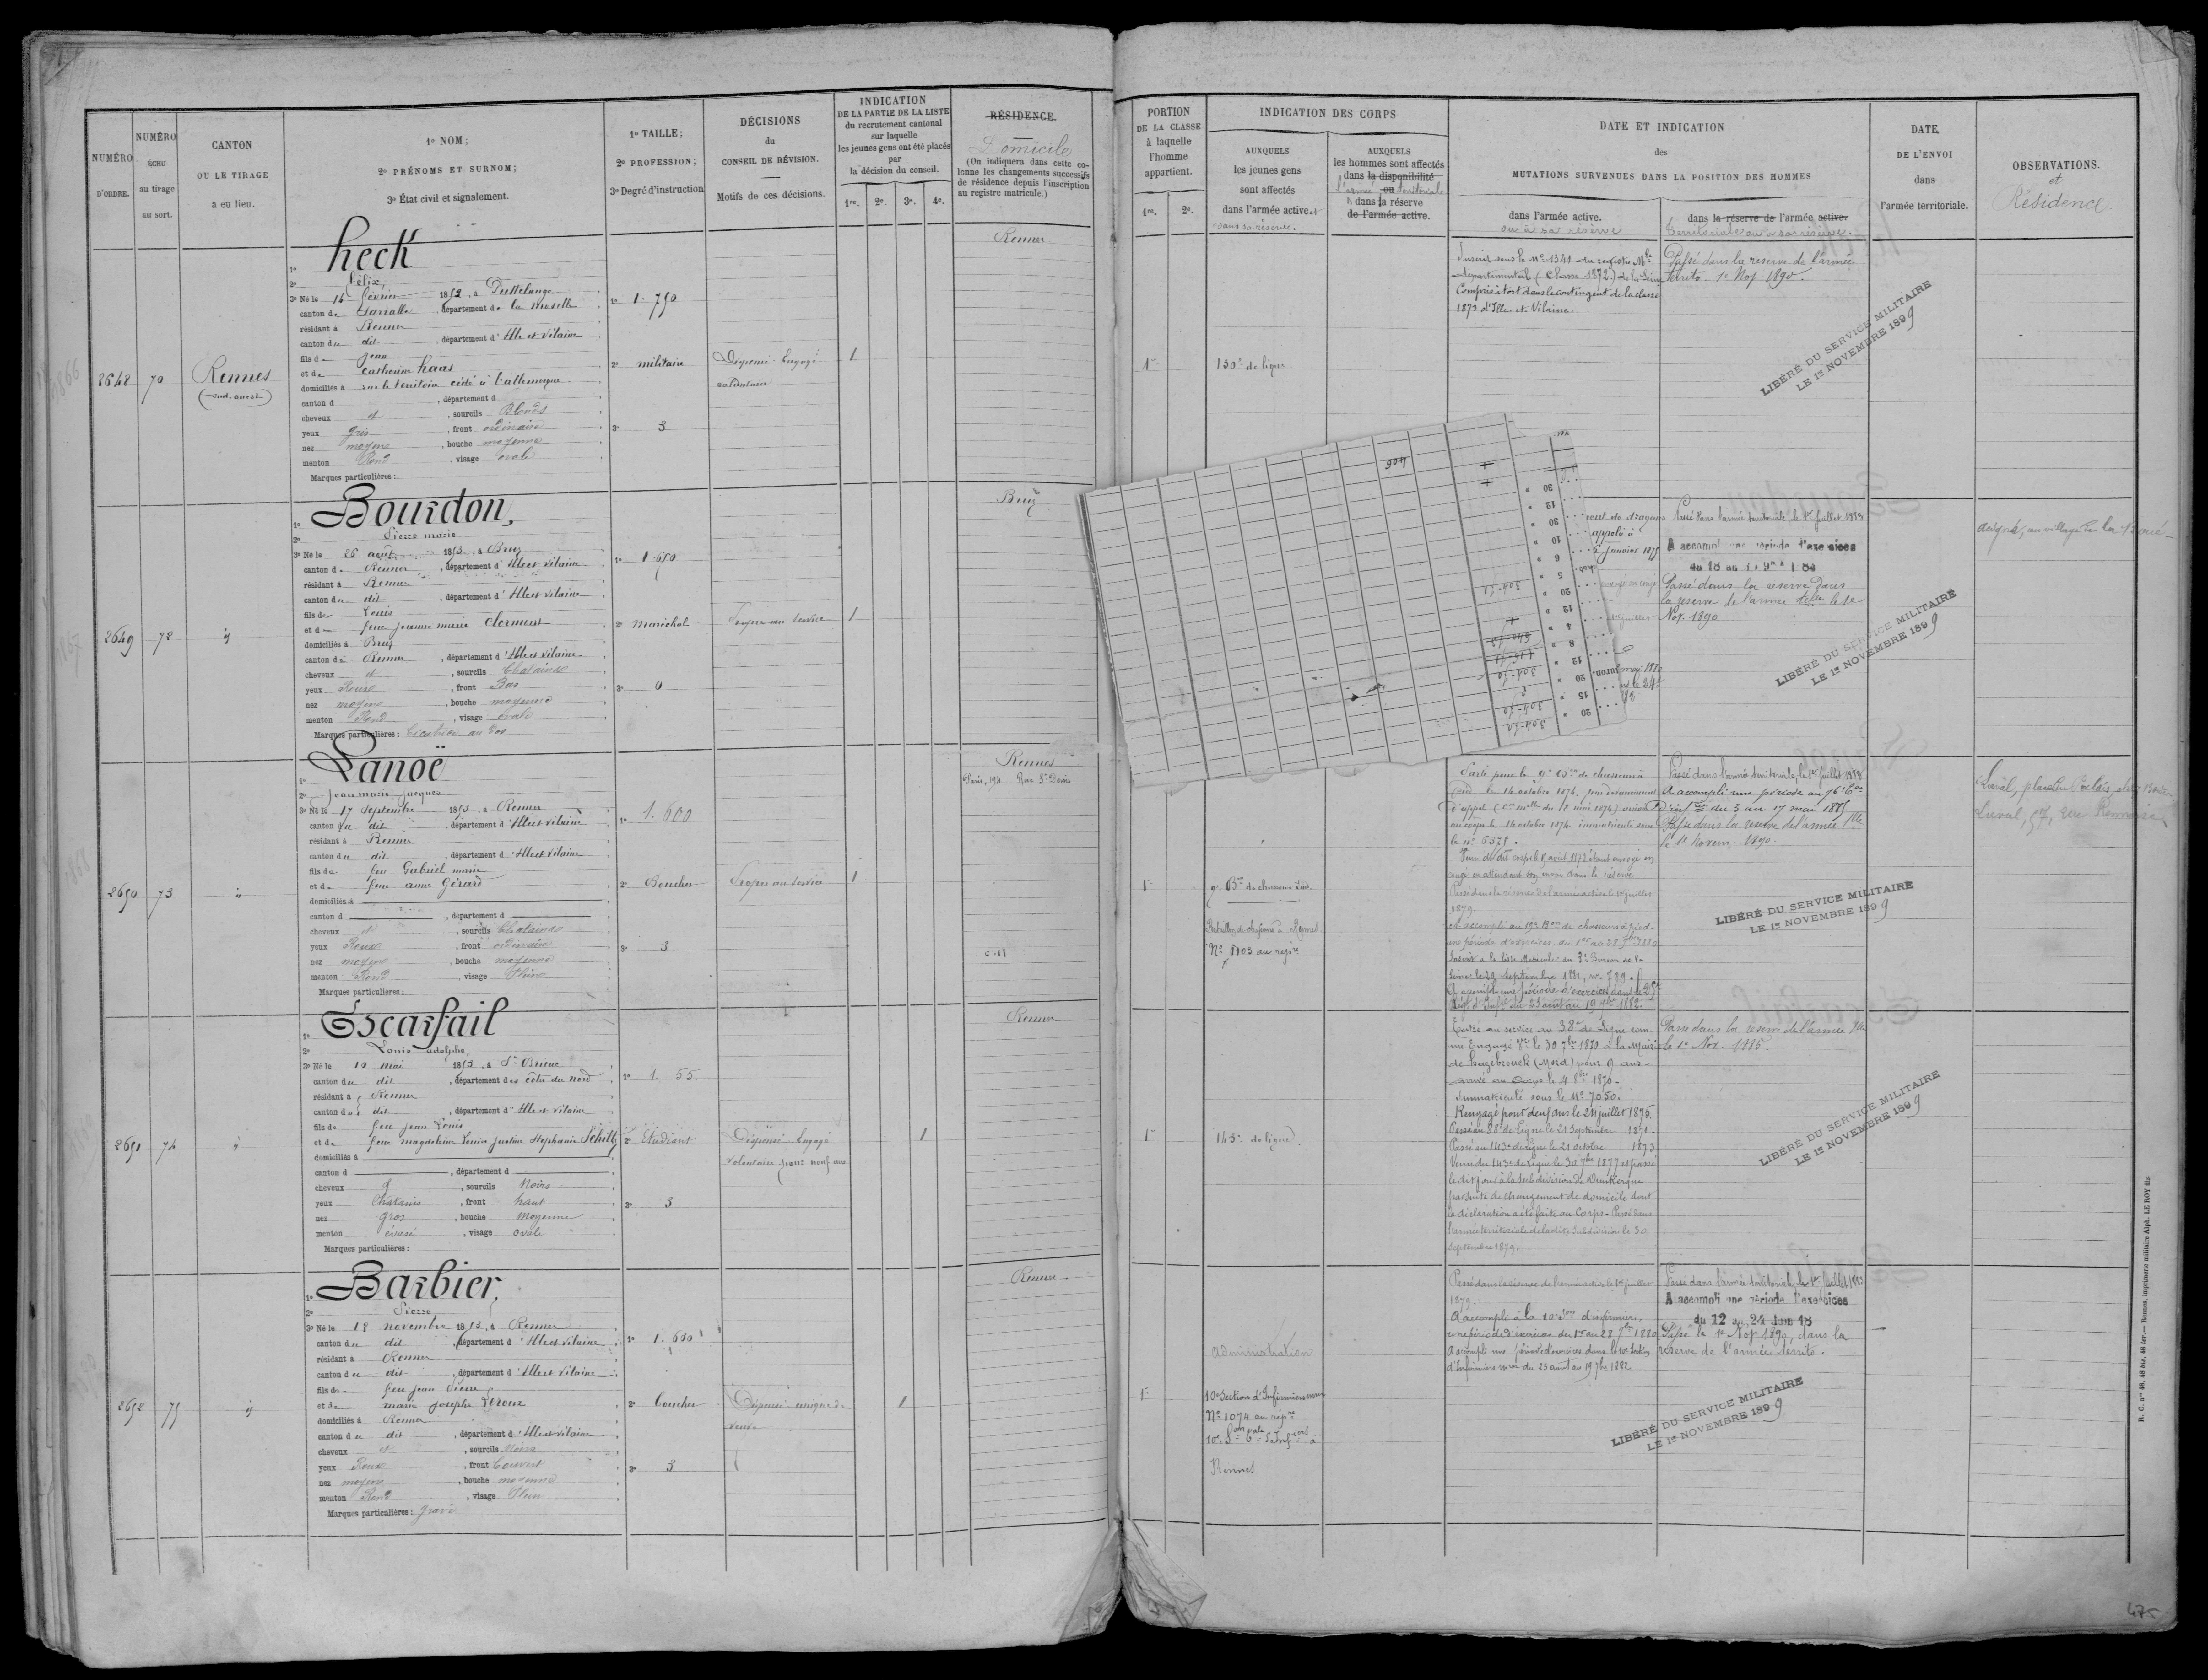 NUMÉRO
D'ORDRE.
NUMÉRO
ÉCHU
au tirage
au sort.
CANTON
OU LE TIRAGE
a eu lieu.
1º NOM;
2º PRÉNOMS ET SURNOM;
3º État civil et signalement.
1º TAILLE;
2º PROFESSION;
3º Degré d'instruction
DÉCISIONS
du
CONSEIL DE RÉVISION.
Motifs de ces décisions.
INDICATION
DE LA PARTIE DE LA LISTE
du recrutement cantonal
sur laquelle
les jeunes gens ont été placés
par
la décision du conseil.
1re. 2e. 3e. 4e.
RÉSIDENCE.
Domicile
(On indiquera dans cette co-
lonne les changements successifs
de résidence depuis l'inscription
au registre matricule.)
PORTION
DE LA CLASSE
à laquelle
l'homme
appartient.
1re. 2e.
INDICATION DES CORPS
AUXQUELS
les jeunes gens
sont affectés
dans l'armée active et
dans sa réserve.
AUXQUELS
les hommes sont affectés
dans la disponibilité
l'armée ou territoriale
dans la réserve
de l'armée active.
DATE ET INDICATION
des
MUTATIONS SURVENUES DANS LA POSITION DES HOMMES
dans l'armée active.
ou à sa réserve
dans la réserve de l'armée active.
territoriale ou à sa réserve.
DATE
DE L'ENVOI
dans
l'armée territoriale.
OBSERVATIONS.
et
Résidence
2648 70 Rennes
(sud-ouest)
1º heck
2º félix,
3º Né le 14 février 1852, à Puttelange
canton de Sarralbe, département de la moselle
résidant à Rennes
canton du dit, département d'Ille et Vilaine
fils de Jean
et de Catherine haas
domiciliés à sur le territoire cédé à l'allemagne
canton d , département d
cheveux et, sourcils Blonds
yeux gris, front ordinaire
nez moyen, bouche moyenne
menton Rond, visage ovale
Marques particulières:
1º 1.750
2º militaire
3º 3
Dispensé. Engagé
volontaire
1
Rennes
1re
130e de ligne
Inscrit sous le nº 1341 du registre Mle
départemental (Classe 1872) de la Seine
Compris à tort dans le contingent de la classe
1873 d'Ille et Vilaine.
Passé dans la reserve de l'armée
territe 1er Nov. 1890.
LIBÉRÉ DU SERVICE MILITAIRE
LE 1er NOVEMBRE 1899
2649 72 id
1º Bourdon,
2º Pierre marie
3º Né le 26 août 1853, à Bruz
canton de Rennes, département d'Ille et Vilaine
résidant à Rennes
canton du dit, département d'Ille et Vilaine
fils de Louis
et de feue jeanne marie Clermont
domiciliés à Bruz
canton de Rennes, département d'Ille et Vilaine
cheveux et, sourcils Chatains
yeux Roux, front Bas
nez moyen, bouche moyenne
menton Rond, visage ovale
Marques particulières: Cicatrice au dos
1º 1.650
2º marechal
3º 0
Propre au service
1
Bruz
904
dragons
appelé à
janvier 1875
Passé dans l'armée territoriale, le 1er Juillet 1883
A accompli une période d'exercices
Passé dans la reserve dans
la reserve de l'armée tlle le 1er
Nov. 1890
LIBÉRÉ DU SERVICE MILITAIRE
LE 1er NOVEMBRE 1899
2650 73 id
1º Lanoë
2º Jean marie Jacques
3º Né le 17 Septembre 1853, à Rennes
canton du dit, département d'Ille et Vilaine
résidant à Rennes
canton du dit, département d'Ille et Vilaine
fils de feu Gabriel marie
et de feue anne Gérard
domiciliés à
canton d , département d
cheveux et, sourcils Chatains
yeux Roux, front ordinaire
nez moyen, bouche moyenne
menton Rond, visage Plein
Marques particulières:
1º 1.600
2º Boucher
3º 3
Propre au service
1
Rennes
Paris, 194 Rue St Denis
1re
9e Bon de chasseurs à pied
Nº 1103 au rép
Parti pour le 9e Bon de chasseurs à
pied le 14 octobre 1874
au corps le 14 octobre 1874 immatriculé sous
le nº 6375.
congé en attendant son envoi dans la réserve
Passé dans la réserve de l'armée active le 1er juillet
1879.
A accompli au 19e Bon de chasseurs à pied
une période d'exercices du 1er au 28 7bre 1880
Seine le 29 septembre 1881, nº 729.
A accompli une période d'exercices dans le 25e
Passé dans l'armée territoriale, le 1er Juillet 1883
A accompli une période au 76e
d'infie du 5 au 17 mai 1885.
Passé dans la reserve de l'armée tlle
le 1er Novem. 1890.
LIBÉRÉ DU SERVICE MILITAIRE
LE 1er NOVEMBRE 1899
Laval, 57, rue Rennaise
2651 74 id
1º Escarfail
2º Louis adolphe,
3º Né le 10 mai 1853, à St Brieuc
canton du dit, département des côtes du nord
résidant à Rennes
canton du dit, département d'Ille et Vilaine
fils de feu Jean Louis
et de feue magdeleine Louise Justine Stephanie Schiltz
domiciliés à
canton d , département d
cheveux et, sourcils Noirs
yeux Chatains, front haut
nez gros, bouche Moyenne
menton évasé, visage ovale
Marques particulières:
1º 1.55.
2º Etudiant
3º 3
Dispensé. Engagé
volontaire pour neuf ans
1
Rennes
1re
143e de ligne
Entré au service au 38e de Ligne com-
me Engagé Vre le 30 7bre 1870 à la Mairie
de hazebrouck (Nord) pour 9 ans
arrivé au Corps le 4 8bre 1870.
Immatriculé sous le Nº 7050.
Rengagé pour deux ans le 24 juillet 1876.
Passé au 88e de Ligne le 21 Septembre 1871.
Passé au 143e de Ligne le 21 octobre 1873
Venu du 143e de Ligne le 30 7bre 1877 et passé
le dit jour à la Subdivision de Dunkerque
par suite de changement de domicile dont
la déclaration a été faite au Corps. Passé dans
l'armée territoriale de la dite Subdivision le 30
septembre 1879.
Passé dans la reserve de l'armée tlle
le 1er Nov. 1885.
LIBÉRÉ DU SERVICE MILITAIRE
LE 1er NOVEMBRE 1899
2652 75 id
1º Barbier,
2º Pierre
3º Né le 18 novembre 1853, à Rennes
canton du dit, département d'Ille et Vilaine
résidant à Rennes
canton du dit, département d'Ille et Vilaine
fils de feu jean Pierre
et de marie josephe Leroux
domiciliés à Rennes
canton du dit, département d'Ille et Vilaine
cheveux et, sourcils Noirs
yeux Roux, front Couvert
nez moyen, bouche moyenne
menton Rond, visage Plein
Marques particulières: gravé
1º 1.660
2º boucher
3º 3
Dispensé unique de
veuve
1
Rennes.
1re
administration
10e Section d'Infirmiers mres
Nº 1074 au répre
Rennes
Passé dans la réserve de l'armée active le 1er juillet
1879.
A accompli à la 10e Son d'infirmiers,
une période d'exercices du 1er au 28 7bre 1880
A accompli une période d'exercices dans la 10e Section
d'Infirmiers mres du 23 aout au 19 7bre 1882
Passé dans l'armée territoriale, le 1er Juillet 1883
A accompli une période d'exercices
du 12 au 24 Juin 18
Passé le 1er Nov 1890, dans la
réserve de l'armée territe.
LIBÉRÉ DU SERVICE MILITAIRE
LE 1er NOVEMBRE 1899
R. C. nos 48, 48 bis, 48 ter. — Rennes, imprimerie militaire Alph. LE ROY fils
475